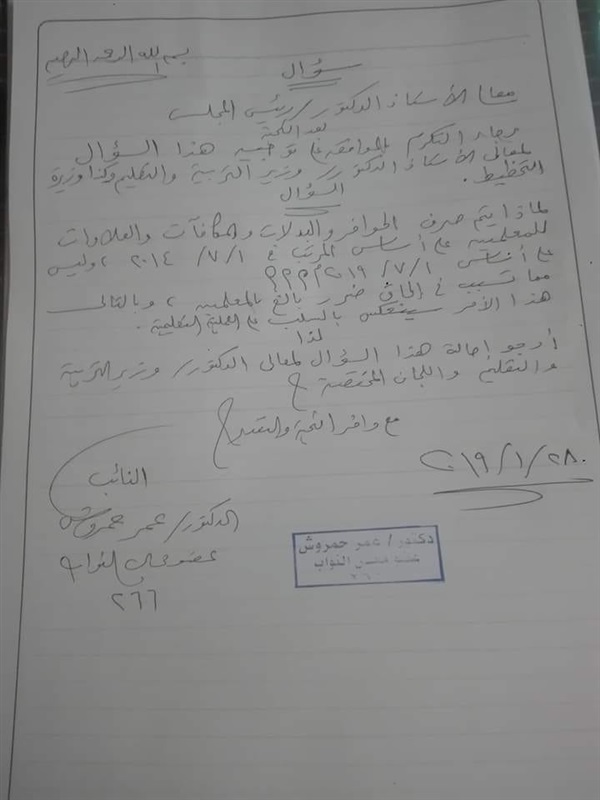 بسم الله الرحمن الرحيم
سؤال
معالي الأستاذ الدكتور/ رئيس المجلس
بعد التحية
برجاء التكرم بالموافقة على توجيه هذا السؤال
لمعالي الأستاذ الدكتور/ وزير التربية والتعليم وكذا وزيرة
التخطيط.
السؤال
لماذا يتم صرف الحوافز والبدلات والمكافآت والعلاوات
للمعلمين على أساس المرتب في ١/٧/٢٠١٤، وليس
على أساس ١/٧/٢٠١٩م؟؟؟
مما تسبب في إلحاق ضرر بالغ بالمعلمين، وبالتالي
هذا الأمر سينعكس بالسلب على العملية التعليمية.
لذا
أرجو إحالة هذا السؤال لمعالي الدكتور/ وزير التربية
والتعليم واللجان المختصة
مع وافر التحية والتقدير
٢٨/١/٢٠١٩
النائب
الدكتور/ عمر حمروش
عضو مجلس النواب
٢٦٦
دكتور/ عمر حمروش
عضو مجلس النواب